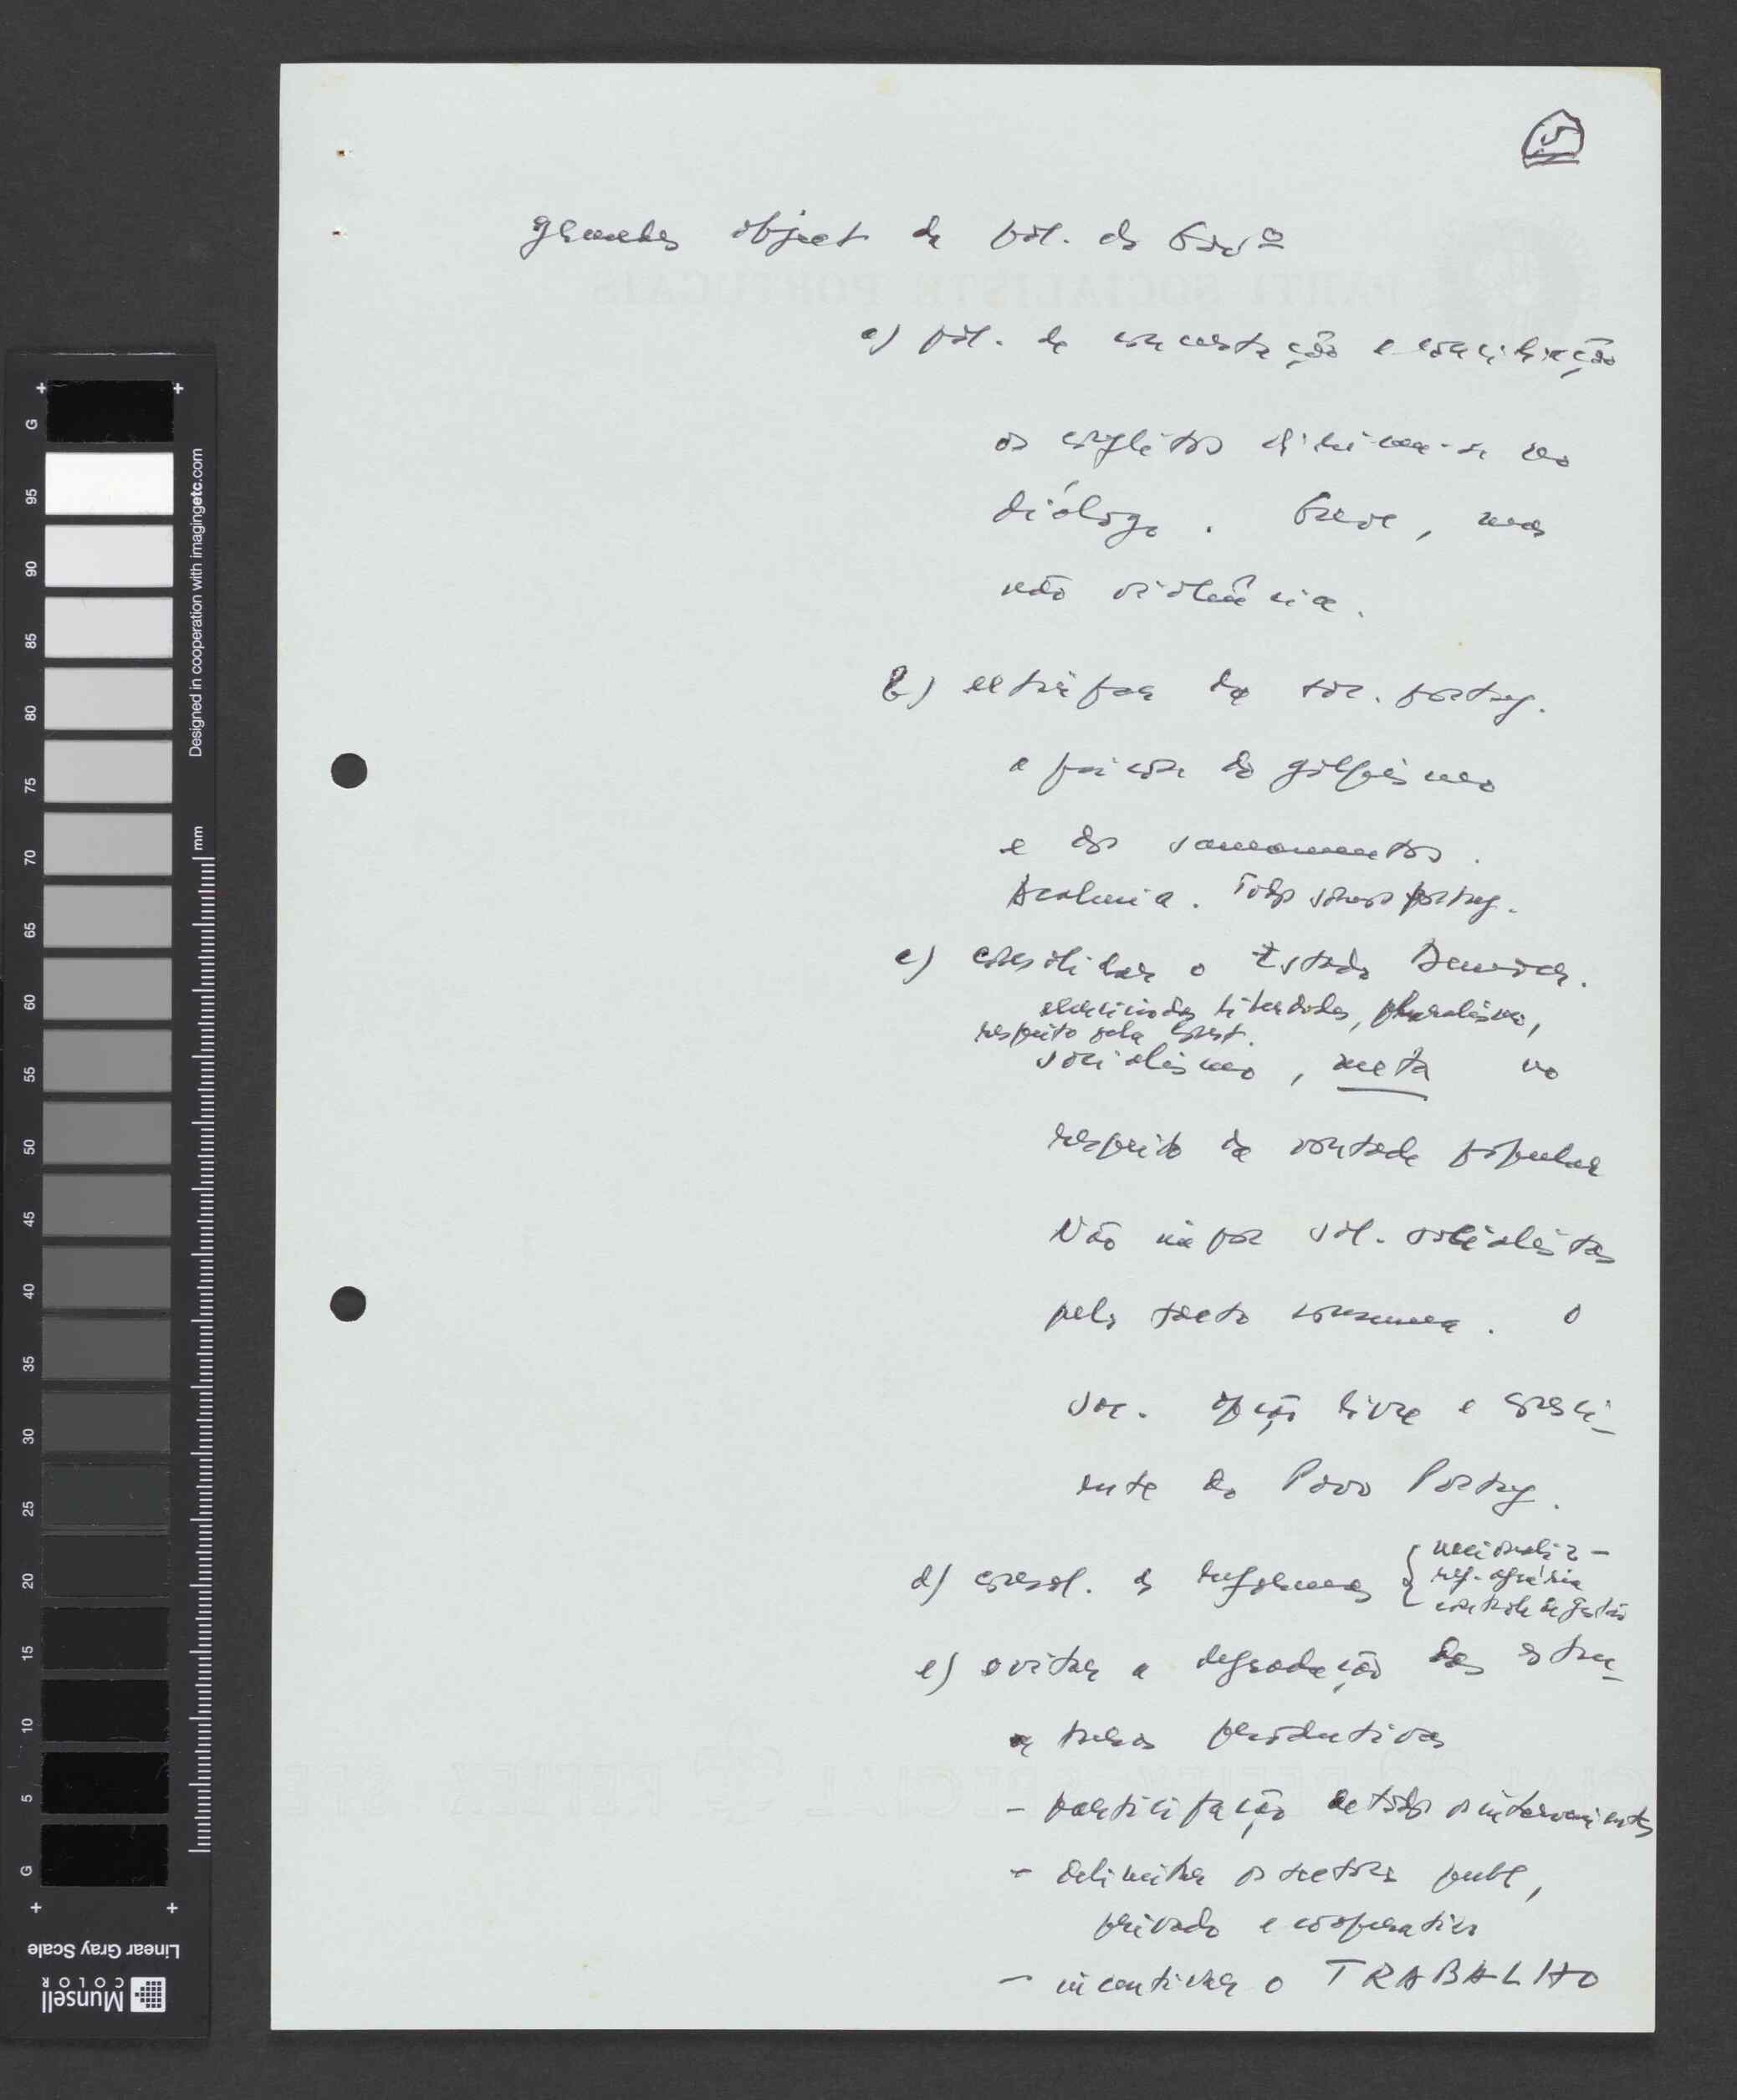 5
grandes object. da pol. do Govº
a) pol. de concertação e conciliação
os conflitos dirimem-se no
diálogo. Greve, mas
não violência.
b) extirpar da soc. portug.
a psicose do golpismo
e dos saneamentos.
Acalmia. Todos somos portug.
c) consolidar o Estado Democr.
exercício das liberdades, pluralismo,
respeito pela Const.
socialismo, meta no
respeito da vontade popular
Não impor sol. socialistas
pelo facto consuma. O
soc. opção livre e consci-
ente do Povo Portug.
d) consol. as reformas { nacionaliz-
ref. agrária
controle de gestão
e) evitar a degradação das estru-
turas produtivas
- participação de todos os intervenientes
- delimitar os sectores publ,
privado e cooperativo
- incentivar o TRABALHO
PARTI SOCIALISTE PORTUGAIS
Designed in cooperation with imagingetc.com
mm
G 95 90 85 80 75 70 65 60 55 50 45 40 35 30 25 20 15 10 5 G
Linear Gray Scale
Munsell
COLOR